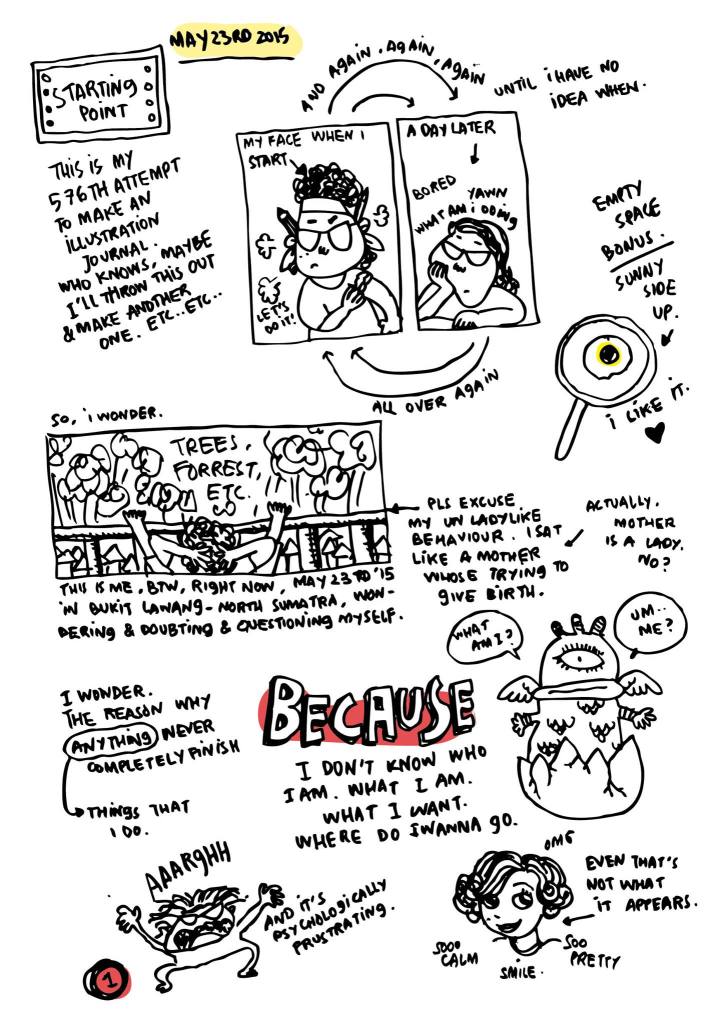 MAY 23RD 2015
STARTING
POINT
THIS IS MY
576TH ATTEMPT
TO MAKE AN
ILLUSTRATION
JOURNAL.
WHO KNOWS, MAYBE
I'LL THROW THIS OUT
& MAKE ANOTHER
ONE. ETC..ETC..
AND AGAIN, AGAIN, AGAIN
UNTIL I HAVE NO
IDEA WHEN.
MY FACE WHEN I
START
LET'S
DO IT!
A DAY LATER
BORED
YAWN
WHAT AM I DOING
ALL OVER AGAIN
EMPTY
SPACE
BONUS.
SUNNY
SIDE
UP.
I LIKE IT.
SO, I WONDER.
TREES,
FORREST,
ETC.
THIS IS ME, BTW, RIGHT NOW, MAY 23RD '15
IN BUKIT LAWANG - NORTH SUMATRA, WON-
DERING & DOUBTING & QUESTIONING MYSELF.
PLS EXCUSE
MY UN LADYLIKE
BEHAVIOUR. I SAT
LIKE A MOTHER
WHOSE TRYING TO
GIVE BIRTH.
ACTUALLY.
MOTHER
IS A LADY.
NO?
WHAT
AM I?
UM..
ME?
I WONDER.
THE REASON WHY
ANYTHING NEVER
COMPLETELY FINISH
THINGS THAT
I DO.
BECAUSE
I DON'T KNOW WHO
I AM. WHAT I AM.
WHAT I WANT.
WHERE DO I WANNA GO.
AAARGHH
AND IT'S
PSYCHOLOGICALLY
FRUSTRATING.
OMG
EVEN THAT'S
NOT WHAT
IT APPEARS.
SOOO
CALM
SMILE.
SOO
PRETTY
1